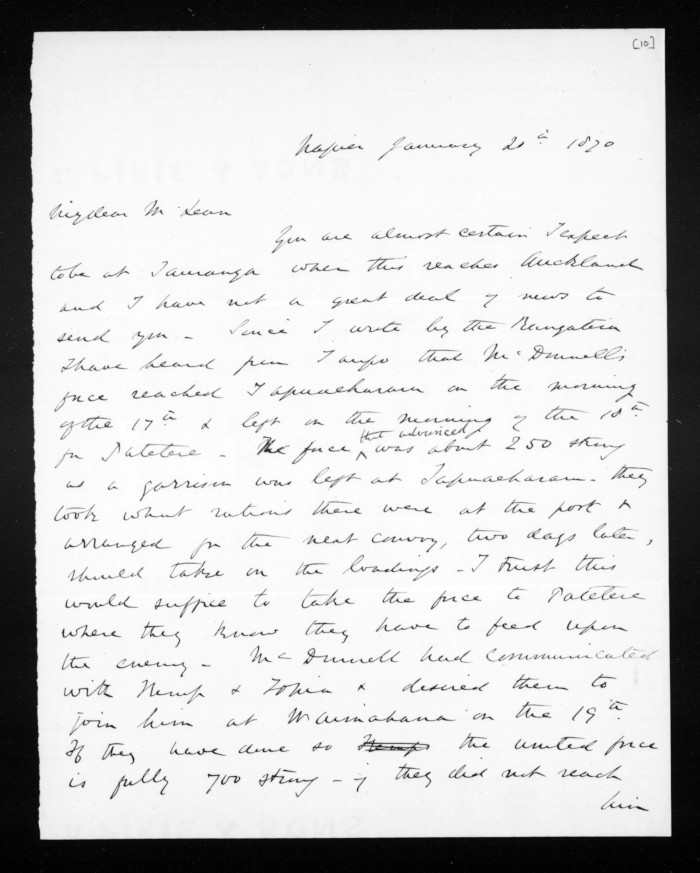 [10]
Napier January 20th 1870
My dear McLean
You are almost certain I expect
to be at Tauranga when this reaches Auckland
and I have not a great deal of news to
send you - Since I wrote by the Rangatira
I have heard from Taupo that McDonnell's
force reached Tapuaeharam on the morning
of the 17th & left on the morning of the 18th
for Patetere - The force that advanced was about 250 strong
as a garrison was left at Tapuaeharam - they
took what rations there were at the post &
arranged for the next convoy, two days later,
should take on the loadings - I trust this
would suffice to take the force to Patetere
where they know they have to feed upon
the enemy - McDonnell had communicated
with Kemp & Topia & desired them to
join him at Waimahana on the 19th.
If they have done so Kemp the united force
is fully 700 strong - if they did not reach
him